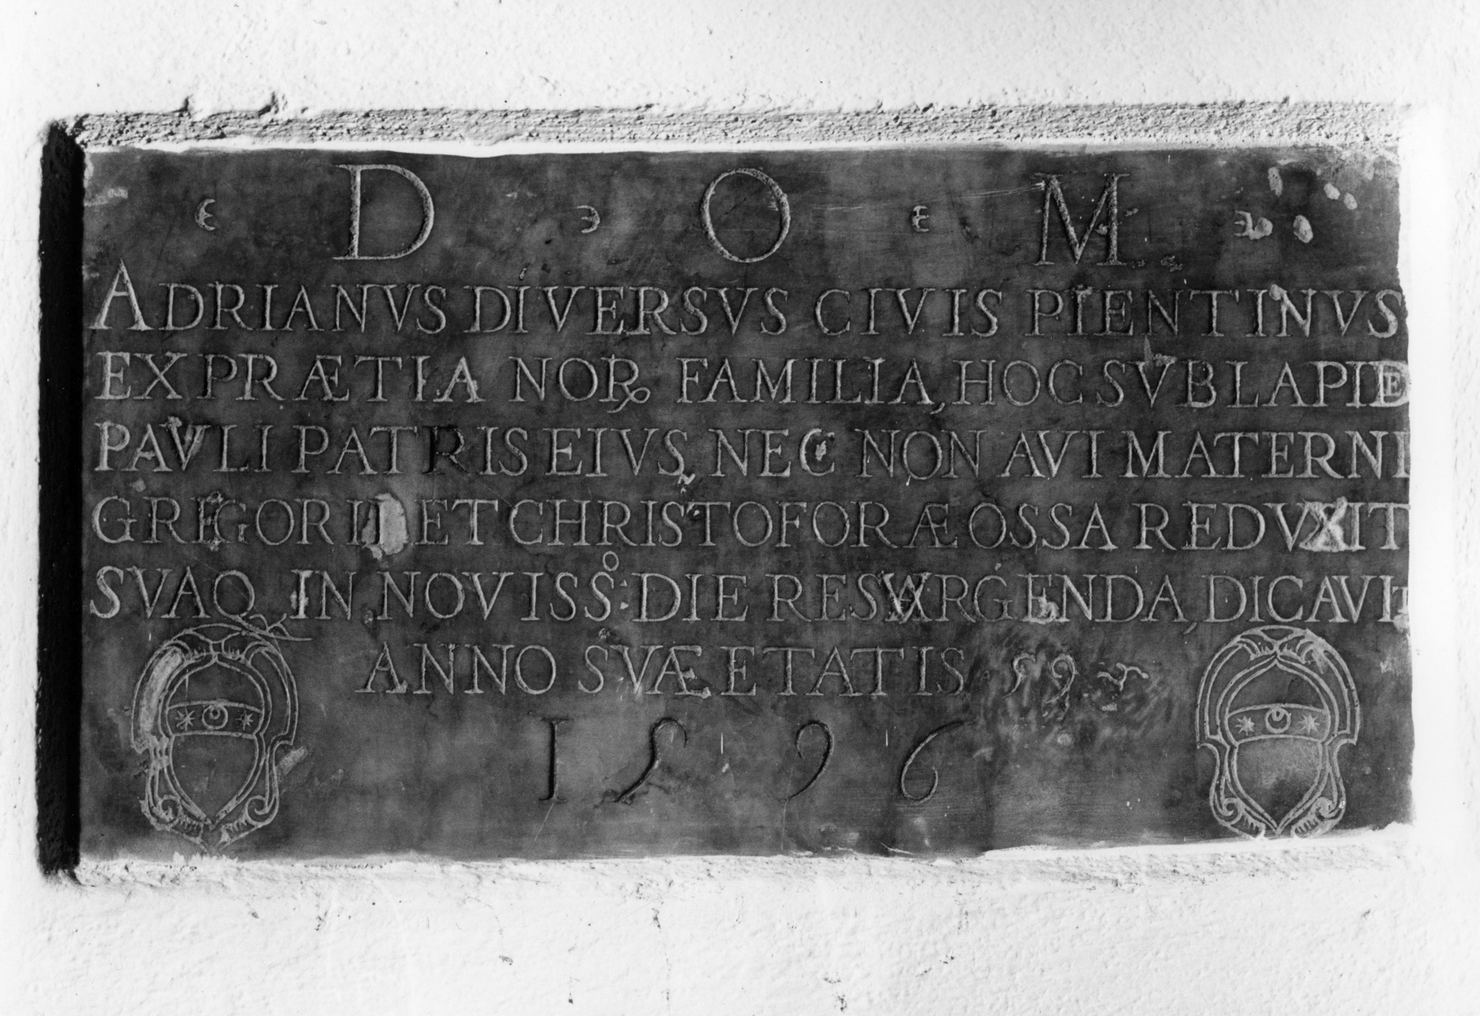 D O M
ADRIANVS DIVERSVS CIVIS PIENTINVS
EX PRÆTIA NOR FAMILIA, HOC SVB LAPIDE
PAVLI PATRIS EIVS, NEC NON AVI MATERNI
GREGORII ET CHRISTOFORÆ OSSA REDVXIT
SVAQ IN NOVISS.º DIE RESVRGENDA, DICAVIT
ANNO SVÆ ETATIS 59
1596